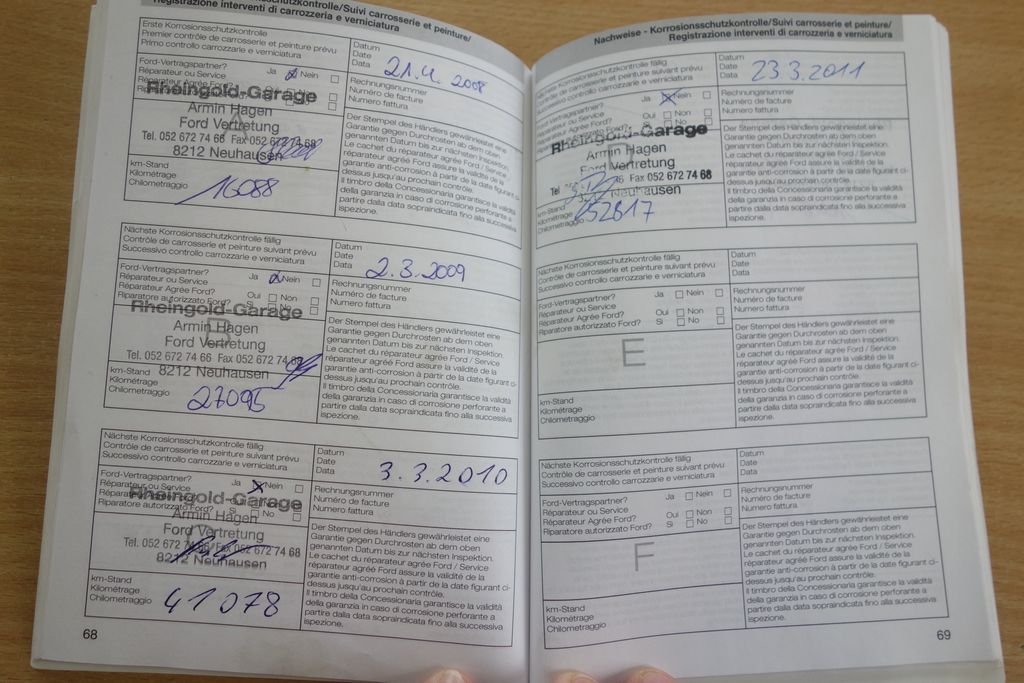 Registrazione interventi di carrozzeria e verniciatura
Erste Korrosionsschutzkontrolle
Premier contrôle de carrosserie et peinture prévu
Primo controllo carrozzerie e verniciatura
Datum
Date
Data
21.4. 2008
Ford-Vertragspartner?
Réparateur ou Service
Ja Nein
Rechnungsnummer
Numéro de facture
Numero fattura
Rheingold-Garage
Armin Hagen
Ford Vertretung
Tel. 052 672 74 66 Fax 052 672 74 68
8212 Neuhausen
km-Stand
Kilométrage
Chilometraggio
16088
Der Stempel des Händlers gewährleistet eine
Garantie gegen Durchrosten ab dem oben
genannten Datum bis zur nächsten Inspektion.
Le cachet du réparateur agréé Ford / Service
réparateur agréé Ford assure la validité de la
garantie anti-corrosion à partir de la date figurant ci-
dessus jusqu'au prochain contrôle.
Il timbro della Concessionaria garantisce la validità
della garanzia in caso di corrosione perforante a
partire dalla data sopraindicata fino alla successiva
ispezione.
Nächste Korrosionsschutzkontrolle fällig
Contrôle de carrosserie et peinture suivant prévu
Successivo controllo carrozzerie e verniciatura
Datum
Date
Data
2.3.2009
Ford-Vertragspartner?
Réparateur ou Service
Riparatore autorizzato Ford?
Ja Nein
Oui Non
Si No
Rechnungsnummer
Numéro de facture
Numero fattura
Rheingold-Garage
B
Armin Hagen
Ford Vertretung
Tel. 052 672 74 66 Fax 052 672 74 68
8212 Neuhausen
km-Stand
Kilométrage
Chilometraggio
27095
Der Stempel des Händlers gewährleistet eine
Garantie gegen Durchrosten ab dem oben
genannten Datum bis zur nächsten Inspektion.
Le cachet du réparateur agréé Ford / Service
réparateur agréé Ford assure la validité de la
garantie anti-corrosion à partir de la date figurant ci-
dessus jusqu'au prochain contrôle.
Il timbro della Concessionaria garantisce la validità
della garanzia in caso di corrosione perforante a
partire dalla data sopraindicata fino alla successiva
ispezione.
Nächste Korrosionsschutzkontrolle fällig
Contrôle de carrosserie et peinture suivant prévu
Successivo controllo carrozzerie e verniciatura
Datum
Date
Data
3.3.2010
Ford-Vertragspartner?
Réparateur ou Service
Riparatore autorizzato Ford?
Ja Nein
Rechnungsnummer
Numéro de facture
Numero fattura
Rheingold-Garage
Armin Hagen
Ford Vertretung
Tel. 052 672 74 66 Fax 052 672 74 68
8212 Neuhausen
km-Stand
Kilométrage
Chilometraggio
41078
Der Stempel des Händlers gewährleistet eine
Garantie gegen Durchrosten ab dem oben
genannten Datum bis zur nächsten Inspektion.
Le cachet du réparateur agréé Ford / Service
réparateur agréé Ford assure la validité de la
garantie anti-corrosion à partir de la date figurant ci-
dessus jusqu'au prochain contrôle.
Il timbro della Concessionaria garantisce la validità
della garanzia in caso di corrosione perforante a
partire dalla data sopraindicata fino alla successiva
ispezione.
68
Nachweise - Korrosionsschutzkontrolle/Suivi carrosserie et peinture/
Registrazione interventi di carrozzeria e verniciatura
Nächste Korrosionsschutzkontrolle fällig
Contrôle de carrosserie et peinture suivant prévu
Successivo controllo carrozzerie e verniciatura
Datum
Date
Data
23.3.2011
Ja Nein
Oui Non
Si No
Rechnungsnummer
Numéro de facture
Numero fattura
Rheingold-Garage
Armin Hagen
Ford Vertretung
Fax 052 672 74 68
Neuhausen
km-Stand
Kilométrage
Chilometraggio
52817
Der Stempel des Händlers gewährleistet eine
Garantie gegen Durchrosten ab dem oben
genannten Datum bis zur nächsten Inspektion.
Le cachet du réparateur agréé Ford / Service
réparateur agréé Ford assure la validité de la
garantie anti-corrosion à partir de la date figurant ci-
dessus jusqu'au prochain contrôle.
Il timbro della Concessionaria garantisce la validità
della garanzia in caso di corrosione perforante a
partire dalla data sopraindicata fino alla successiva
ispezione.
Nächste Korrosionsschutzkontrolle fällig
Contrôle de carrosserie et peinture suivant prévu
Successivo controllo carrozzerie e verniciatura
Datum
Date
Data
Ford-Vertragspartner?
Réparateur ou Service
Réparateur Agréé Ford?
Riparatore autorizzato Ford?
Ja Nein
Oui Non
Si No
Rechnungsnummer
Numéro de facture
Numero fattura
E
km-Stand
Kilométrage
Chilometraggio
Der Stempel des Händlers gewährleistet eine
Garantie gegen Durchrosten ab dem oben
genannten Datum bis zur nächsten Inspektion.
Le cachet du réparateur agréé Ford / Service
réparateur agréé Ford assure la validité de la
garantie anti-corrosion à partir de la date figurant ci-
dessus jusqu'au prochain contrôle.
Il timbro della Concessionaria garantisce la validità
della garanzia in caso di corrosione perforante a
partire dalla data sopraindicata fino alla successiva
ispezione.
Nächste Korrosionsschutzkontrolle fällig
Contrôle de carrosserie et peinture suivant prévu
Successivo controllo carrozzerie e verniciatura
Datum
Date
Data
Ford-Vertragspartner?
Réparateur ou Service
Réparateur Agréé Ford?
Riparatore autorizzato Ford?
Ja Nein
Oui Non
Si No
Rechnungsnummer
Numéro de facture
Numero fattura
F
km-Stand
Kilométrage
Chilometraggio
Der Stempel des Händlers gewährleistet eine
Garantie gegen Durchrosten ab dem oben
genannten Datum bis zur nächsten Inspektion.
Le cachet du réparateur agréé Ford / Service
réparateur agréé Ford assure la validité de la
garantie anti-corrosion à partir de la date figurant ci-
dessus jusqu'au prochain contrôle.
Il timbro della Concessionaria garantisce la validità
della garanzia in caso di corrosione perforante a
partire dalla data sopraindicata fino alla successiva
ispezione.
69